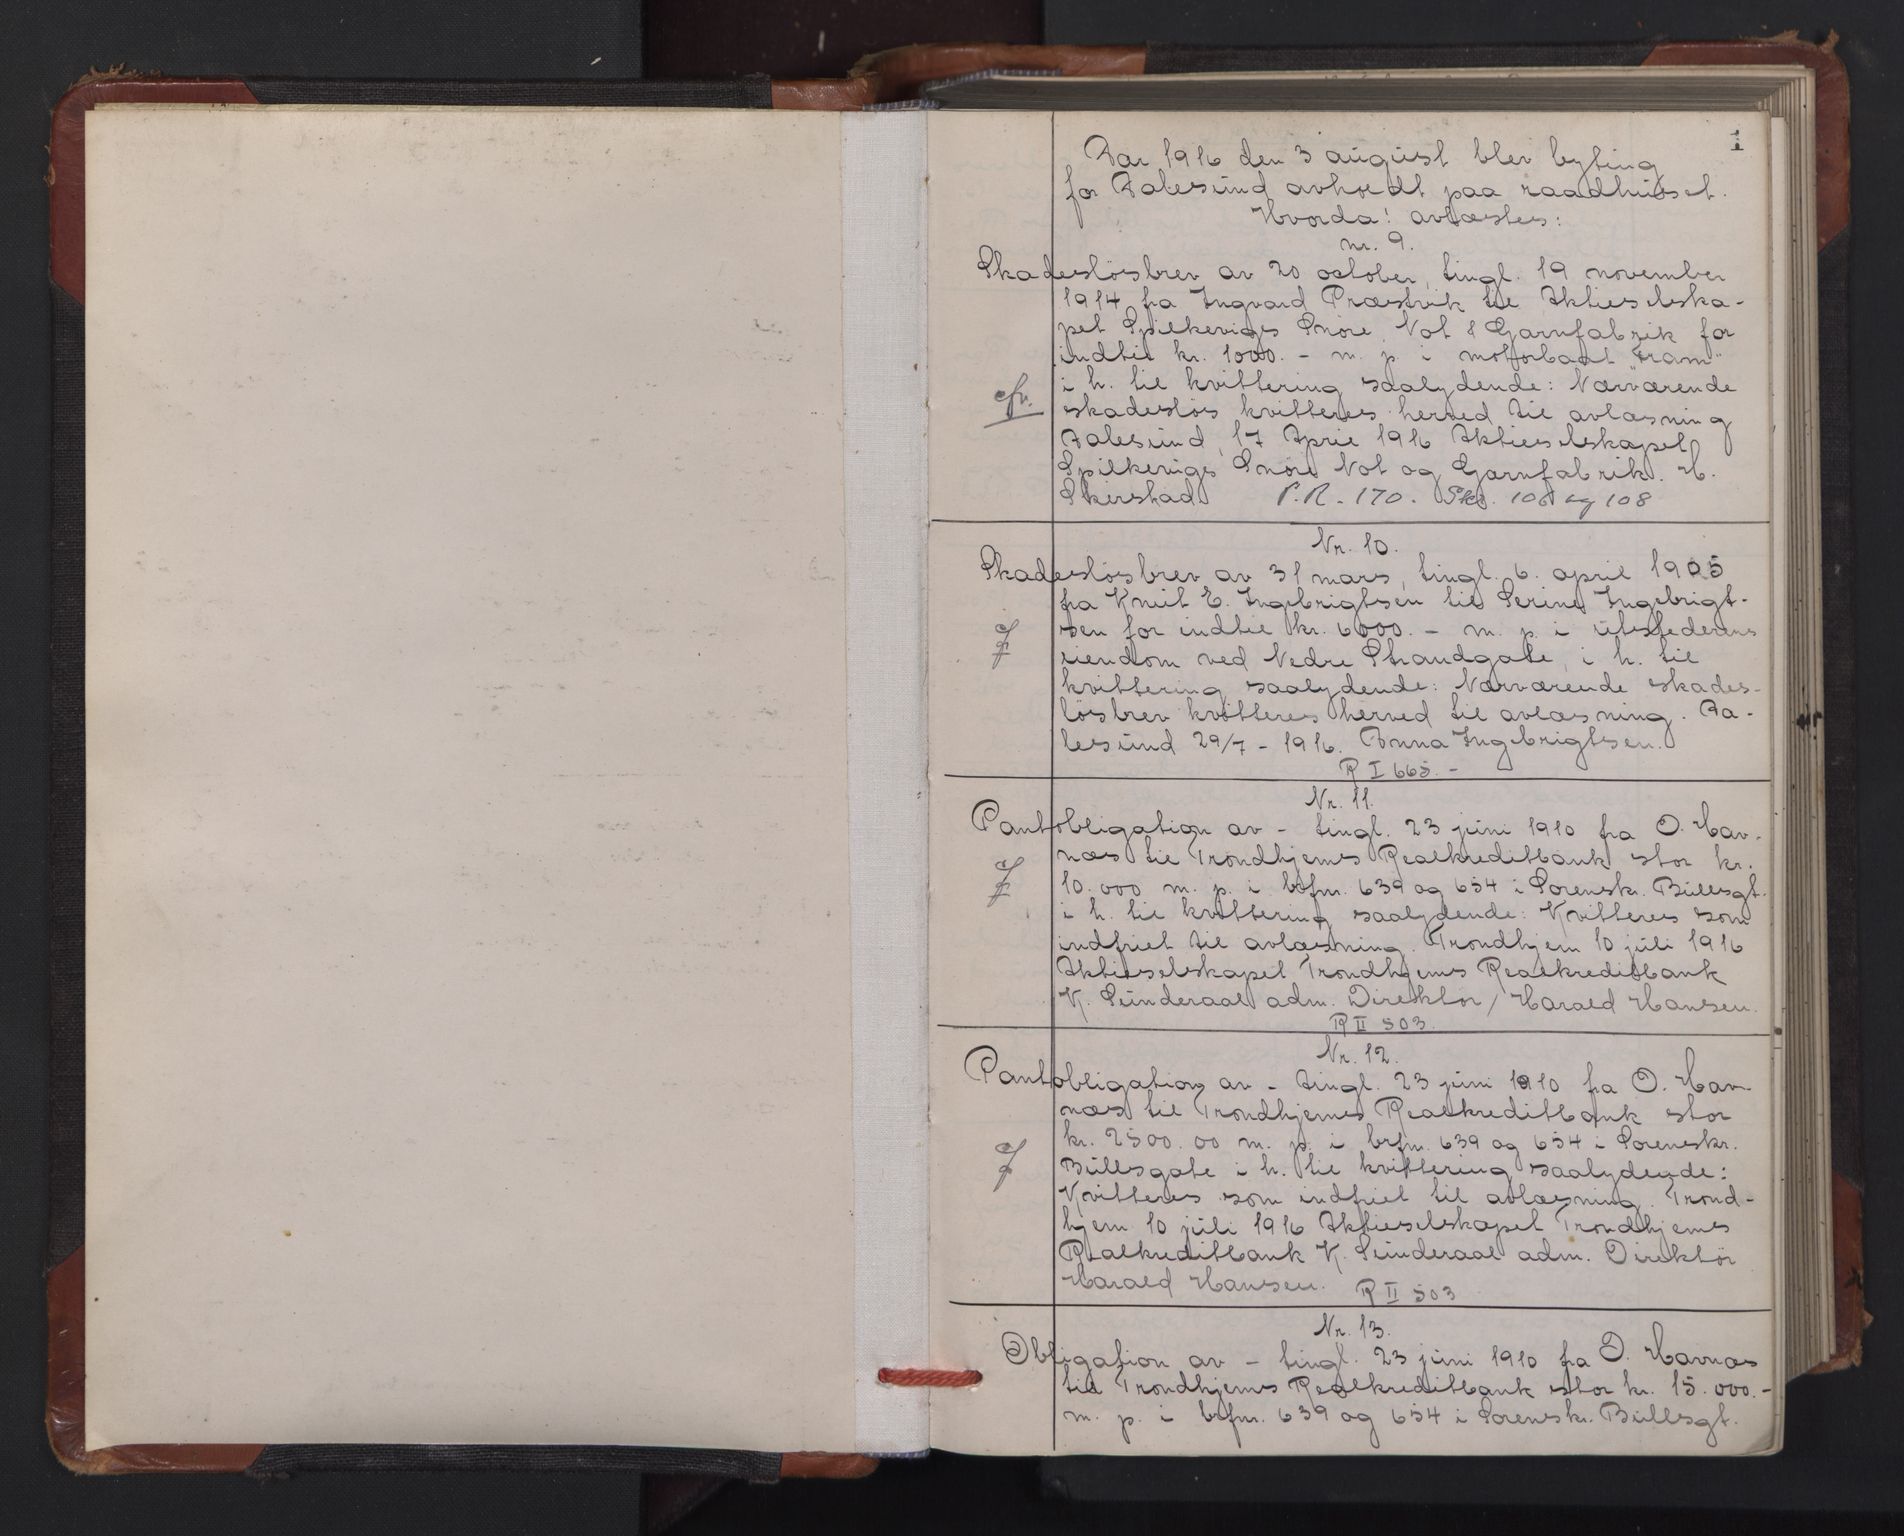 1
Aar 1916 den 3 august blev byting
for Aalesund avholdt paa raadhuset.
Hvorda! avlæstes:
nr. 9.
Skadesløsbrev av 20 october, tingl. 19 november
1914 fra Ingvard Præstvik til Aktieselska-
pet Spilkeviges Snøre, Not & Garnfabrik for
indtil kr. 1000.- m. p. i motorbaat "Fram"
i h. til kvittering saalydende: Nærværende
cfr.
skadesløs kvitteres herved til avlæsning
Aalesund, 17 April 1916 Aktieselskapet
Spilkeviges Snøre Not og Garnfabrik. H.
P.R. 170. Skr. 106 og 108
Nr. 10.
Skadesløsbrev av 31 mars, tingl. 6. april 1905
fra Knut E. Ingebrigtsen til Serine Ingebrigt-
sen for indtil kr. 6000.- m. p. i utstederens
eiendom ved Nedre Strandgate, i h. til
kvittering saalydende: Nærværende skades-
løsbrev kvitteres herved til avlæsning. Aa-
lesund 29/7 - 1916. Anna Ingebrigtsen.
R I 665.-
Nr. 11.
Pantobligation av - tingl. 23 juni 1910 fra O. Hav-
næs til Trondhjems Realkreditbank stor kr.
10.000 m. p. i brfnr. 639 og 654 i Sorenskr. Bullsgt.
i h. til kvittering saalydende: Kvitteres som
indfriet til avlæsning. Trondhjem 10 juli 1916
Aktieselskapet Trondhjems Realkreditbank
K. Sunderaal adm. Direktør / Harald Hansen.
R II 503.
Nr. 12.
Pantobligation av - tingl. 23 juni 1910 fra O. Hav-
næs til Trondhjems Realkreditbank stor
kr. 2500.00 m. p. i brfnr. 639 og 654 i Sorenskr.
Bullsgate i h. til kvittering saalydende:
Kvitteres som indfriet til avlæsning. Trond-
hjem 10 juli 1916 Aktieselskapet Trondhjems
Realkreditbank K. Sunderaal adm. Direktør
Harald Hansen. R II 503
Nr. 13.
Obligation av - tingl. 23 juni 1910 fra O. Havnæs
til Trondhjems Realkreditbank stor kr. 15.000.-
m. p. i brfnr. 639 og 654 i Sorenskr. Bullsgt.